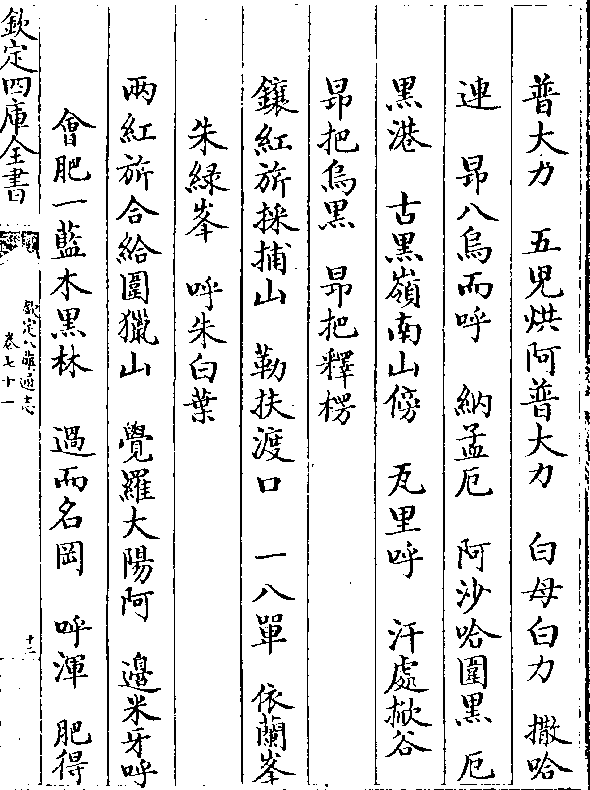 普大力　五児烘阿普大力　白母白力　撒哈
連　昻八烏而呼　納孟厄　阿沙哈圍黒　厄
黒港　古黒嶺南山傍　瓦里呼　汗處掀谷
昻把烏黒　昻把釋楞
鑲紅旂採捕山　勒扶渡口　一八單　依蘭峯
朱緑峯　呼朱白葉
兩紅旂合給圍獵山　覺羅大陽阿　邊米牙呼
會肥一藍木黒林　過而名岡　呼渾　肥得
欽定四庫全書
欽定八旗通志
卷七十一
十二